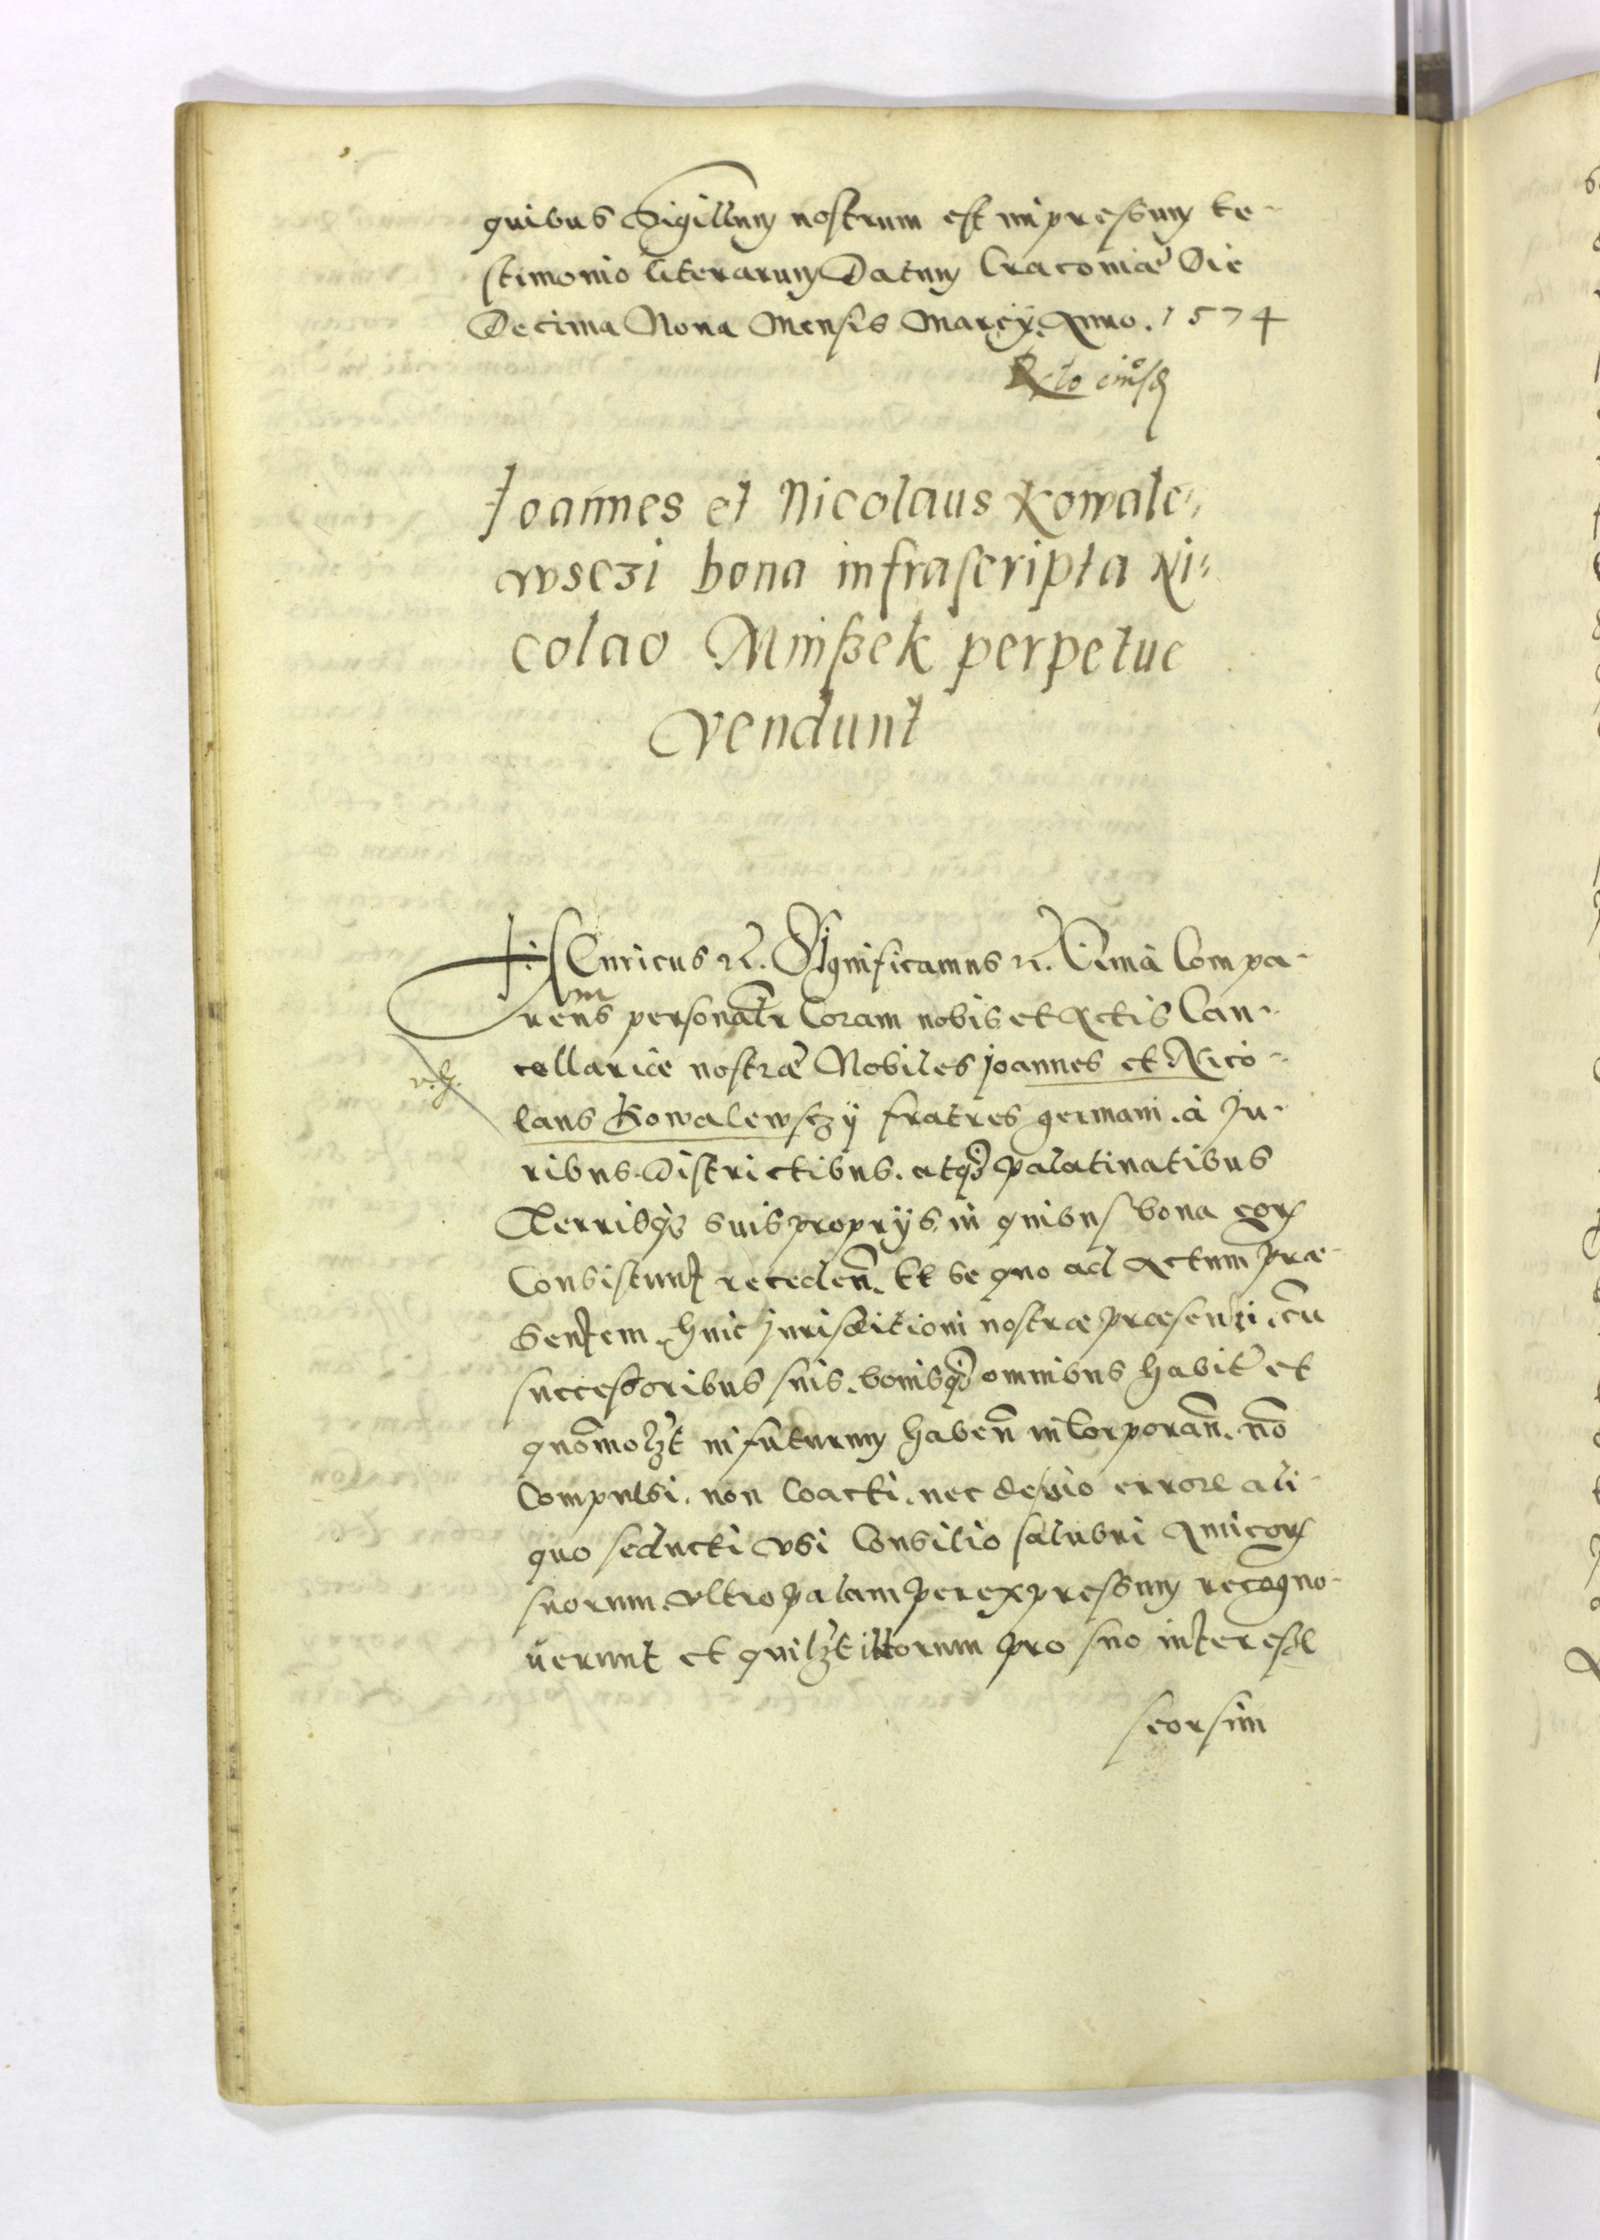 quibus Sigillum nostrum est impressum te-
stimonio literarum Datum Craconiæ Die
Decima Nona Mensis Marcÿ Anno . 1574
Joannes et Nicolaus Kowale=
wsczi bona infrascripta Ni=
colao Mnißek perpetue
vendunt
Henricus etc. Significamus etc. Compa-
rens personalr Coram nobis et Actis Can-
cellariæ nostræ Nobiles Joannes et Nico-
laus Kowalewsczÿ fratres germani . à Ju-
ribus Districtibus . atq₃ Palatinatibus
Terrisq₃ suis proprÿs, in quibus bona eor
Consistunt receden̄. Et se quo ad Actum præ-
sentem . huic Jurisditioni nostræ præsenti . cū
successoribus suis . bonisq₃ omnibus habit et
quomolzt in futurum haben̄ incorporan̄ . nō
Compulsi . non Coacti . nec devio errore ali-
quo seducti vsi Consilio salubri Amicor
suorum . vltro palam per expressum recogno-
verunt et quilzt illorum pro suo interesse
seorsim